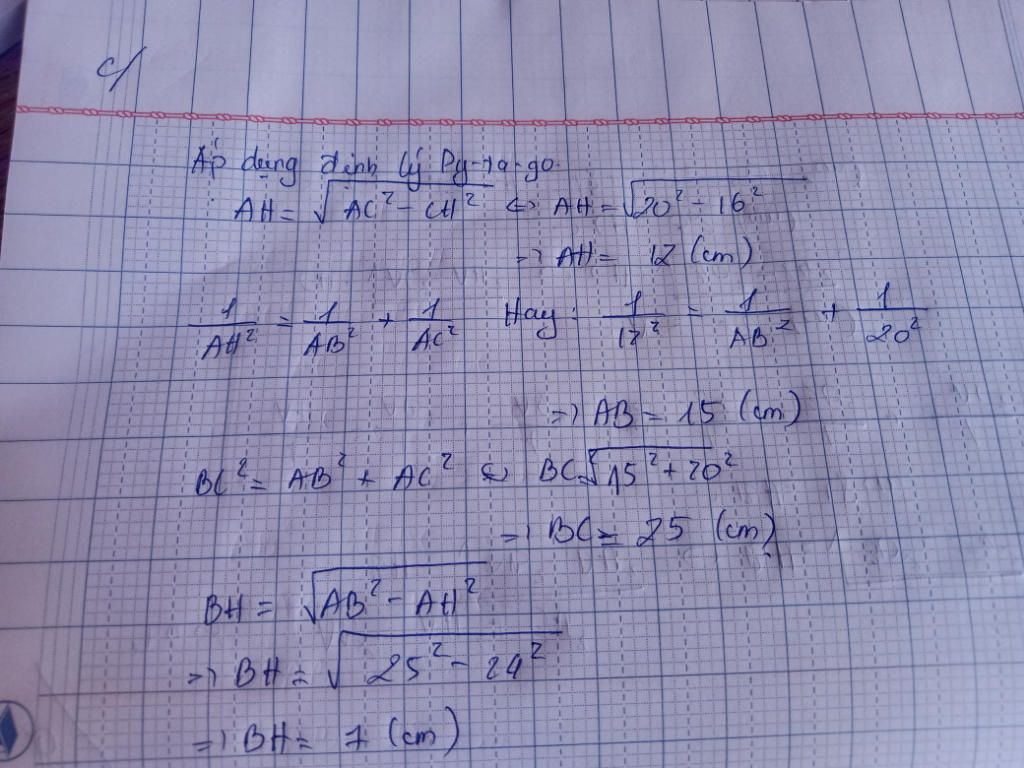 c/
Áp dụng định lý Py-ta-go
AH = √AC² - CH² <=> AH = √20² - 16²
=> AH = 12 (cm)
1/AH² = 1/AB² + 1/AC² Hay: 1/12² = 1/AB² + 1/20²
=> AB = 15 (cm)
BC² = AB² + AC² <=> BC = √15² + 20²
=> BC = 25 (cm)
BH = √AB² - AH²
=> BH = √25² - 24²
=> BH = 7 (cm)